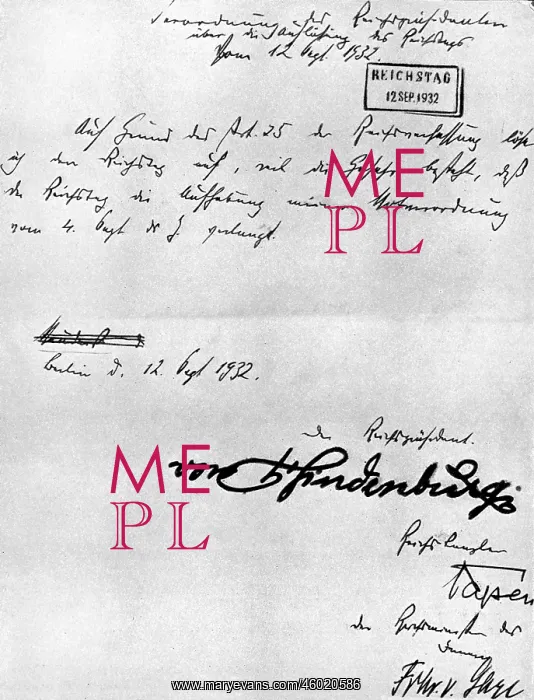 Verordnung des Reichspräsidenten
über die Auflösung des Reichstags
Vom 12. Sept. 1932.
REICHSTAG
12 SEP. 1932
Auf Grund des Art. 25 der Reichsverfassung löse
ich den Reichstag auf, weil die Gefahr besteht, daß
der Reichstag die Aufhebung meiner Notverordnung
vom 4. Sept. d. J. verlangt.
ME
PL
Berlin d. 12. Sept 1932.
der Reichspräsident.
von Hindenburg
ME
PL
Reichskanzler
Papen
der Reichsminister des
Innern
Frhr. v. Gayl
www.maryevans.com/46020586